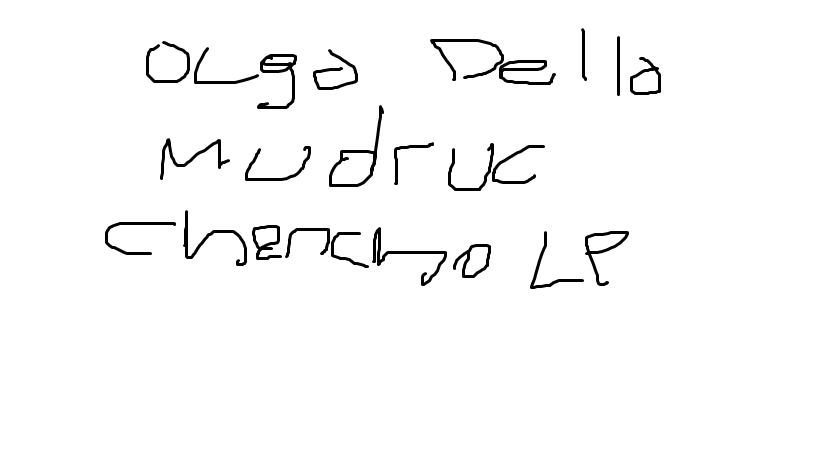 Olga Della
Mudruc
Cherncho LP